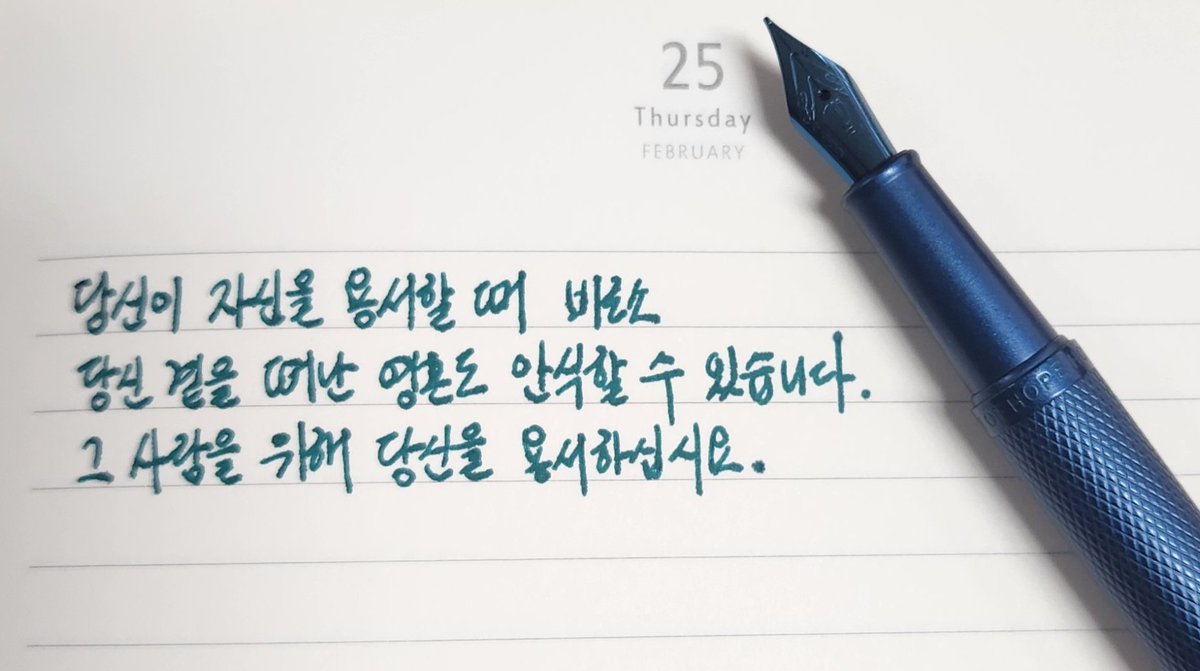 25
Thursday
FEBRUARY
당신이 자신을 용서할 때 비로소
당신 곁을 떠난 영혼도 안식할 수 있습니다.
그 사람을 위해 당신을 용서하십시오.
HOPE